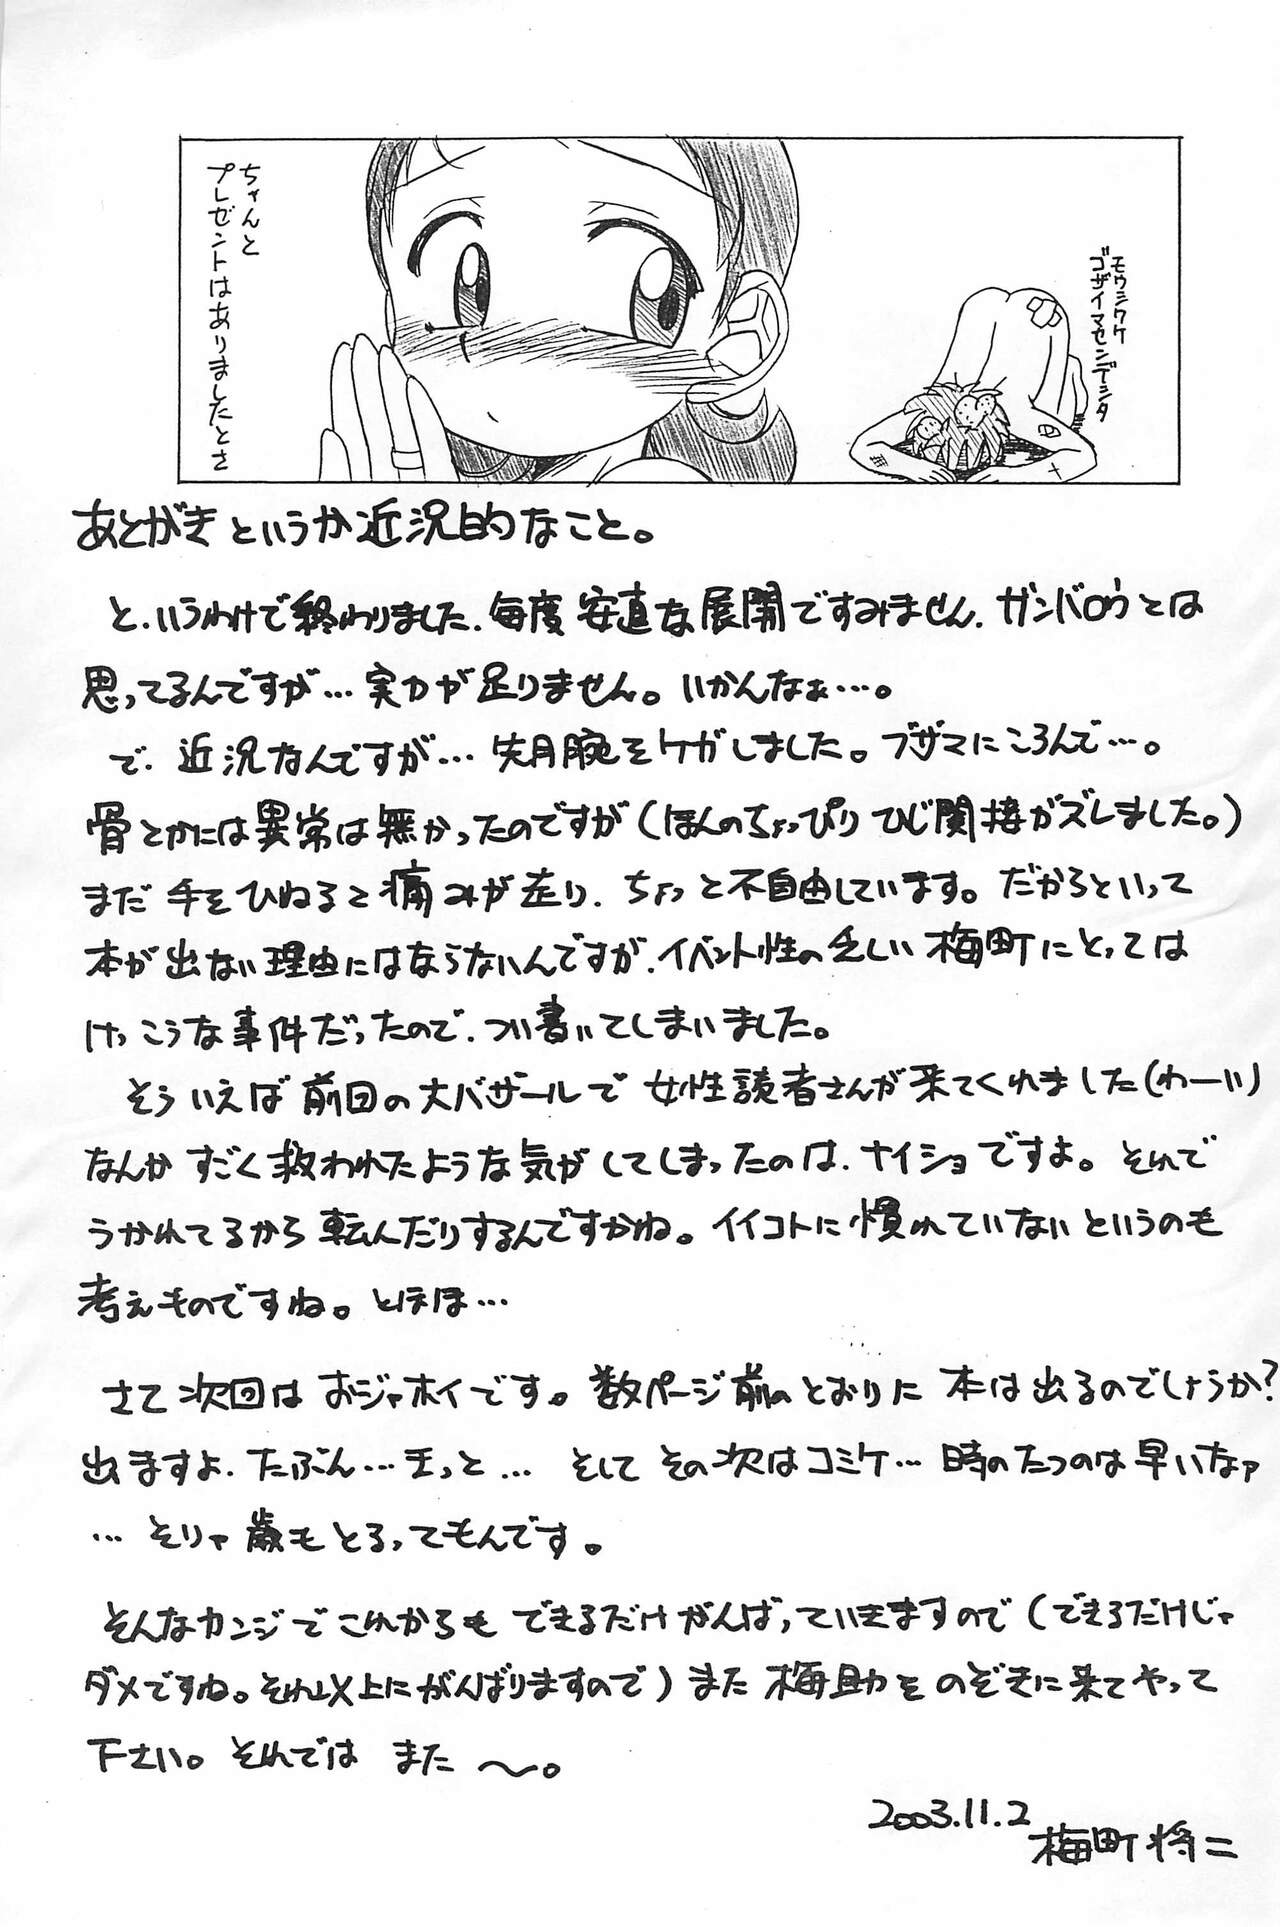 モウシワケ
ゴザイマセンデシタ
ちゃんと
プレゼントはありましたとさ
あとがきというか近況的なこと。
と、いうわけで終わりました、毎度安直な展開ですみません、ガンバロウとは
思ってるんですが…実力が足りません。いかんなぁ…。
で、近況なんですが…先月腕をケガしました。ブザマにころんで…。
骨とかには異常は無かったのですが(ほんのちょっぴりひじ関接がズレました。)
まだ手をひねると痛みが走り、ちょっと不自由しています。だからといって
本が出ない理由にはならないんですが、イベント性の乏しい梅町にとっては
けっこうな事件だったので、つい書いてしまいました。
そういえば前回の大バザールで女性読者さんが来てくれました(わーい)
なんかすごく救われたような気がしてしまったのは、ナイショですよ。それで
うかれてるから転んだりするんですかね。イイコトに慣れていないというのも
考えものですね。とほほ…
さて次回はおジャホイです。数ページ前のとおりに本は出るのでしょうか?
出ますよ、たぶん…きっと… そしてその次はコミケ…時のたつのは早いなァ
…そりゃ歳もとるってもんです。
そんなカンジでこれからもできるだけがんばっていきますので(できるだけじゃ
ダメですね。それ以上にがんばりますので)また梅助をのぞきに来てやって
下さい。それでは また 〜。
2003.11.2
梅町 将二